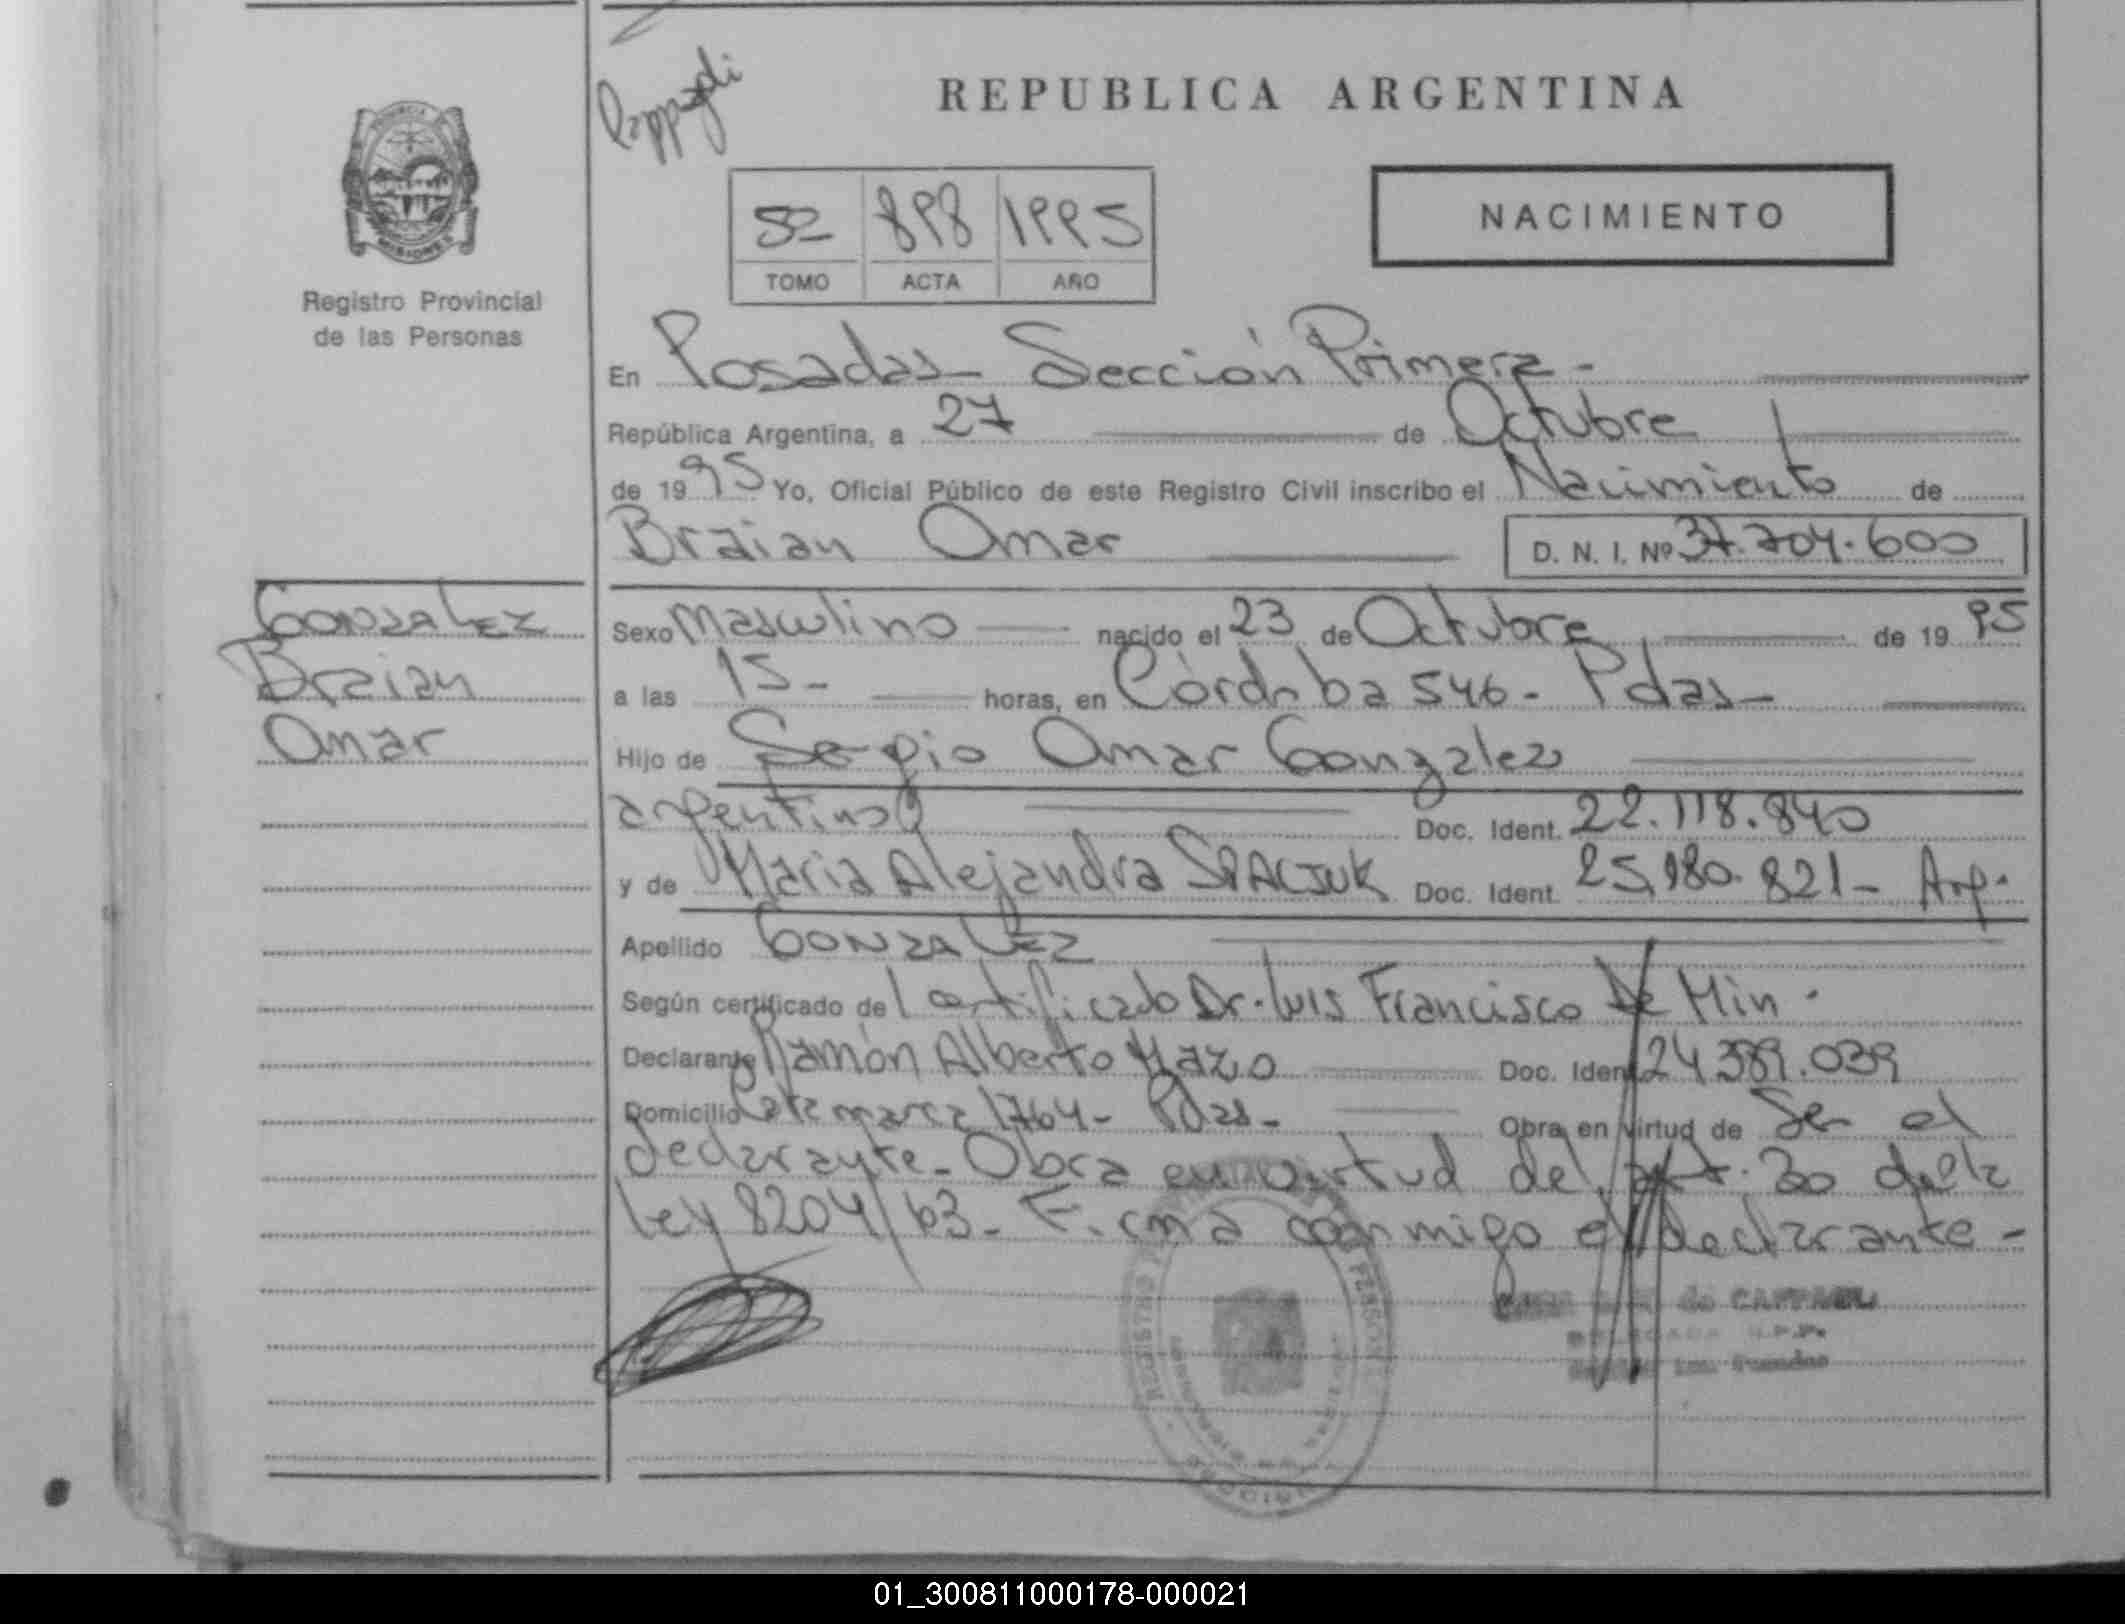 REPUBLICA ARGENTINA
NACIMIENTO
52 898 1995
TOMO ACTA AÑO
PROVINCIA
MISIONES
Registro Provincial
de las Personas
En Posadas - Sección Primera -
República Argentina, a 27 de Octubre
de 1995 Yo, Oficial Público de este Registro Civil inscribo el Nacimiento de
Braian Omar D. N. I. Nº 37.704.600
Gonzalez
Braian
Omar
Sexo Masculino nacido el 23 de Octubre de 1995
a las 15 - horas, en Córdoba 546 - Pdas -
Hijo de Sergio Omar Gonzalez
argentino Doc. Ident. 22.118.840
y de Maria Alejandra Doc. Ident. 25.980.821 - Arg.
Apellido GONZALEZ
Según certificado de Certificado Dr. Luis Francisco De Min.
Declarante Ramón Alberto Doc. Ident. 24.389.039
Domicilio Catamarca 1764 - Pdas - Obra en virtud de Ser el
declarante - Obra en virtud del art. 30 de la
Ley 8204/63 - Firma conmigo el declarante -
01_300811000178-000021